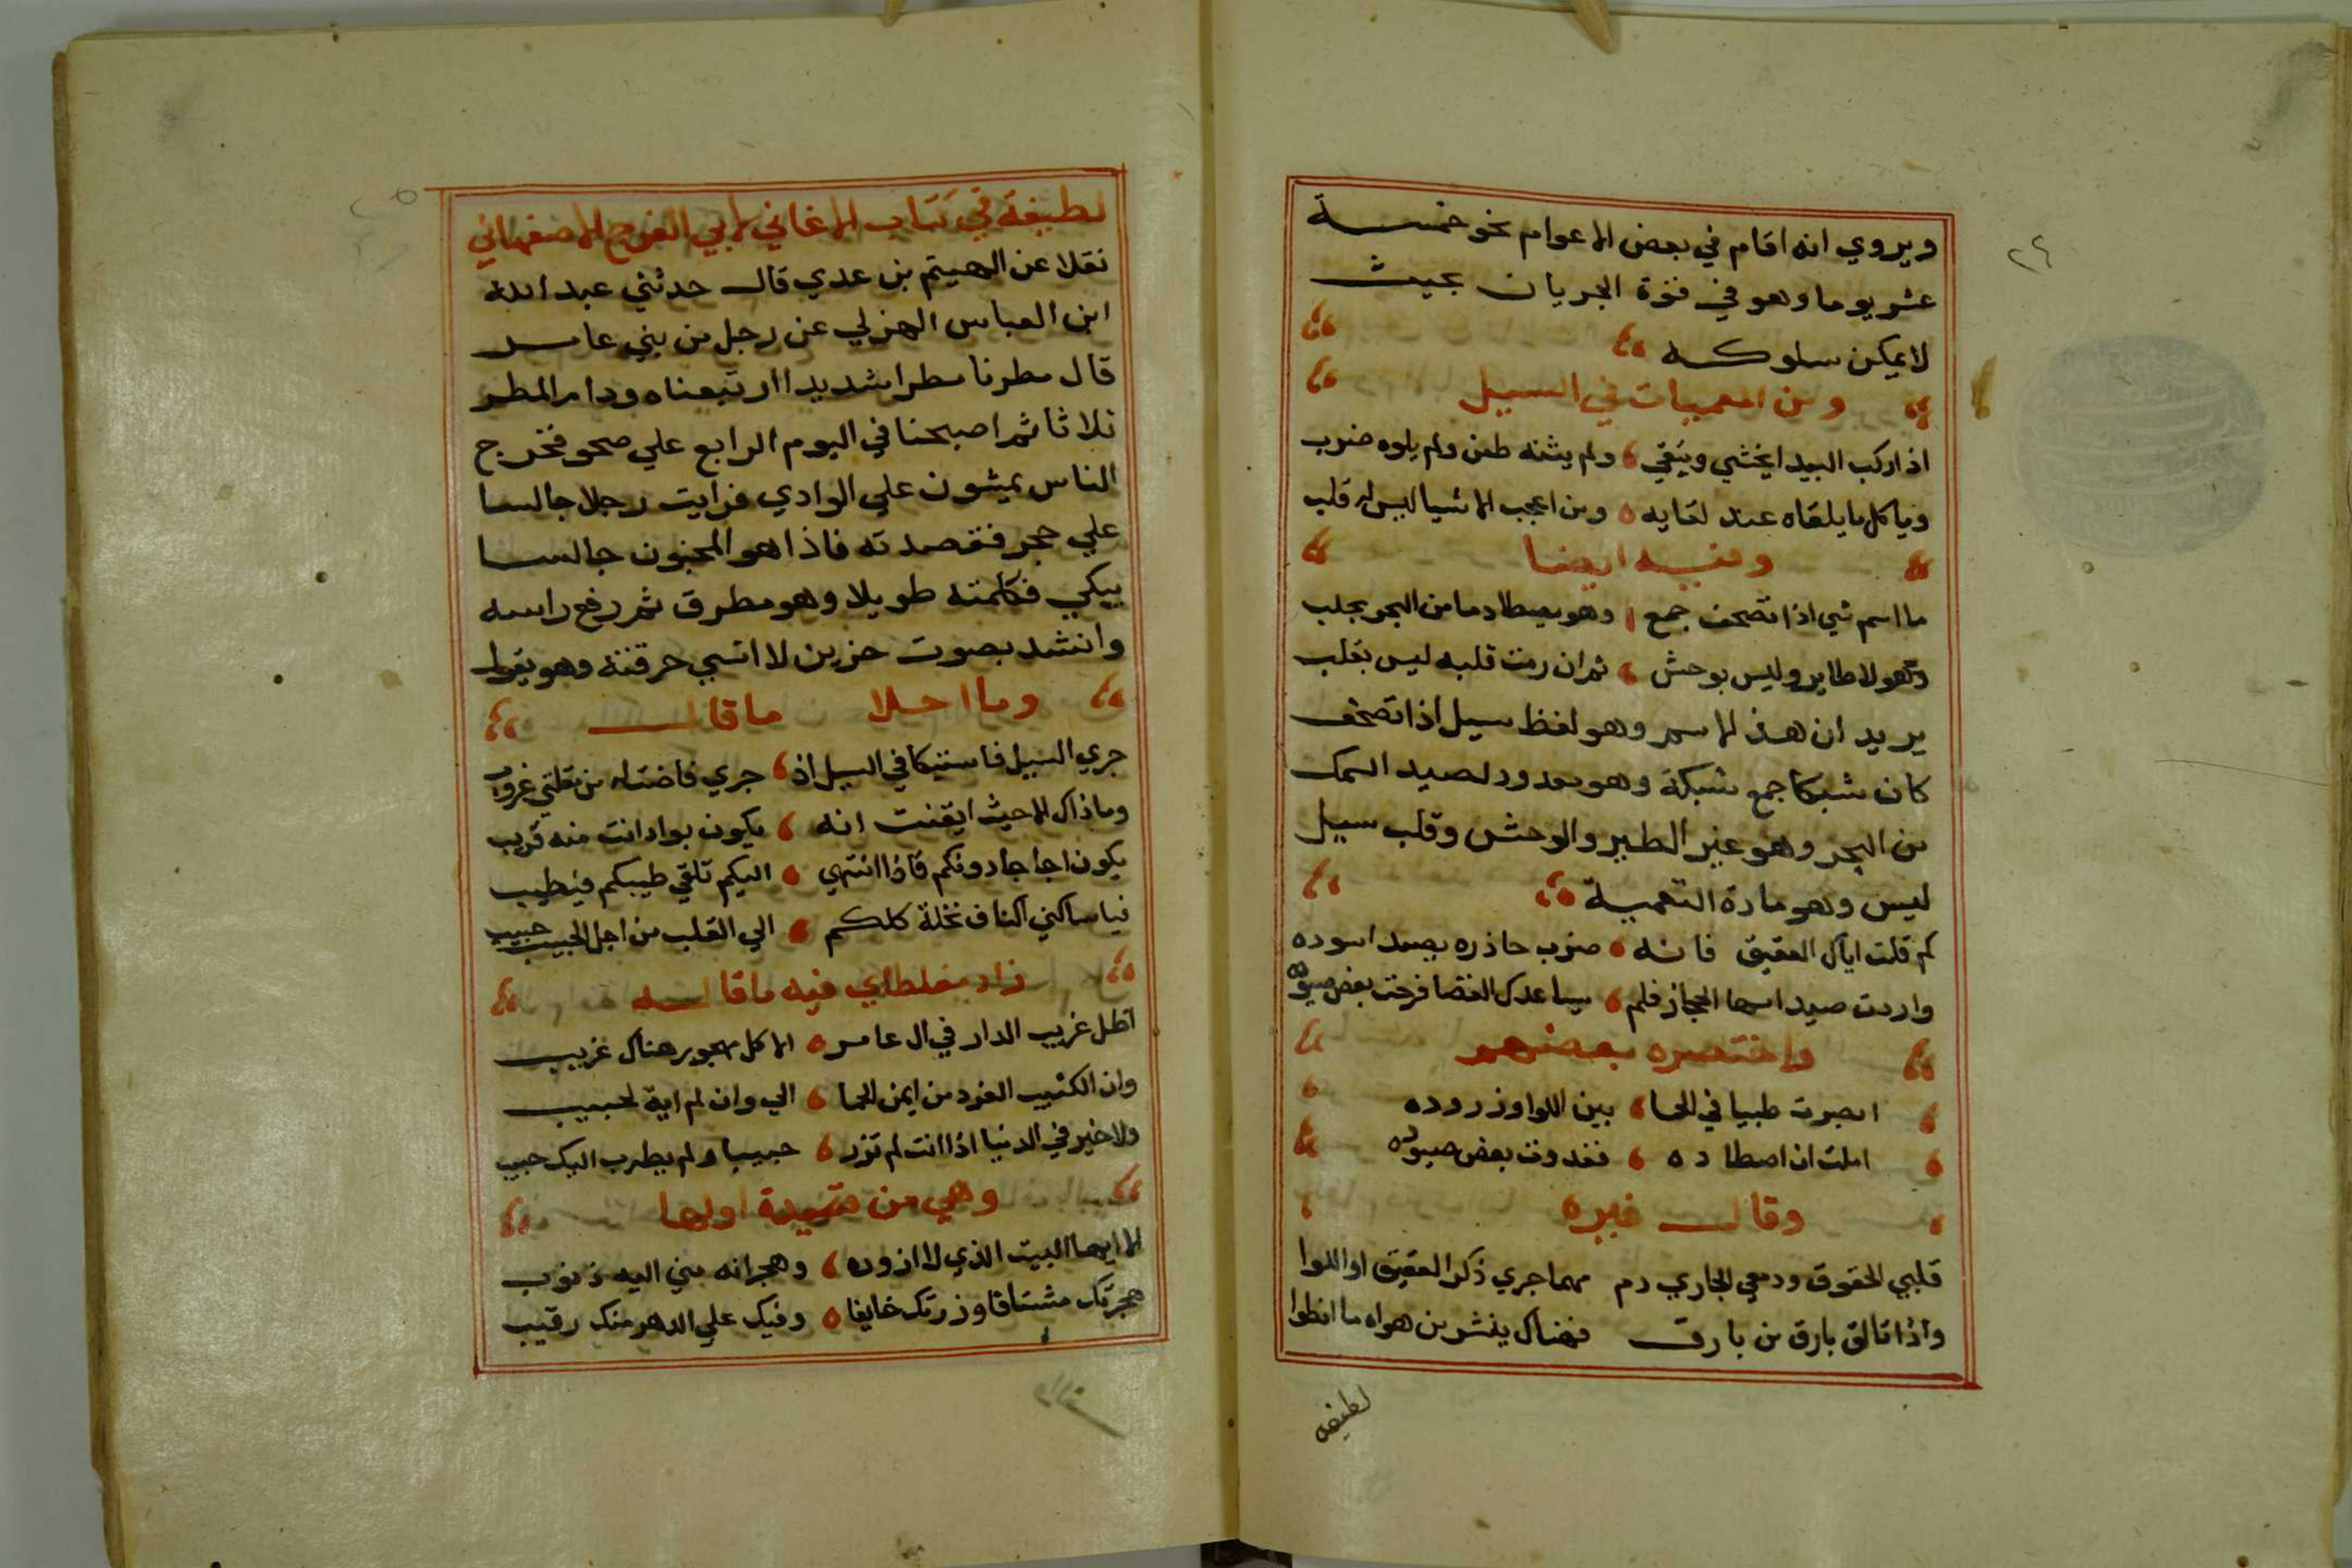 ٢٤
ويروي انه اقام في بعض الاعوام نحو خمسة
عشر يوما وهو في قوة الجريان بحيث
لا يمكن سلوكه
ومن المعميات في السيل
اذا ركب البيدا يخشي ويتقي ولم يثنه طعن ولم يلوه ضرب
وياكل ما يلقاه عند لقايه ومن اعجب الاشيا ليس له قلب
وفيه ايضا
ما اسم شي اذا تصحف جمع وهو يصطاد ما من البحر يجلب
وهو لا طاير وليس بوحش ثم ان رمت قلبه ليس يقلب
يريد ان هذ الاسم وهو لفظ سيل اذا تصحف
كان شبكا جمع شبكة وهو معدود لصيد السمك
من البحر وهو غير الطير والوحش وقلب سيل
ليس وهو مادة التعمية
كم قلت اياك العقيق فانه ضرب حاذره بصيد اسوده
واردت صيد امها الحجاز فلم يساعدك القضا فرحت بعض صيوده
واختصره بعضهم
ابصرت ظبيا في الحما بين اللوا وزروده
املت ان اصطاده فغدوت بعض صيوده
وقال غيره
قلبي الخفوق ودمعي الجاري دم مهما جري ذكر العقيق او اللوا
واذا تالق بارق من بارق فهناك ينشر من هواه ما انطوا
لطيفه
٢٥
لطيفة في كتاب الاغاني لابي الفرج الاصفهاني
نقلا عن الهيتم بن عدي قال حدثني عبد الله
ابن العباس الهزلي عن رجل من بني عامر
قال مطرنا مطرا شديدا ارتبعناه ودام المطر
ثلاثا ثم اصبحنا في اليوم الرابع علي صحو فخرج
الناس يمشون علي الوادي فرايت رجلا جالسا
علي حجر فقصدته فاذا هو المجنون جالسا
يبكي فكلمته طويلا وهو مطرق ثم رفع راسه
وانشد بصوت حزين لا انسي حرقته وهو يقول
وما احلا ما قال
جري السيل فاستبكا في السيل اذ جري فاضت له من مقلتي غروب
وما ذاك الا حيث ايقنت انه يكون بواد انت منه قريب
يكون اجاجا دونكم فاذا انتهي اليكم تلقي طيبكم فيطيب
فيا ساكني اكناف نخلة كلكم الي القلب من اجل الحبيب حبيب
زاد مغلطاي فيه ما قاله
اظل غريب الدار في ال عامر الا كل مهجور هناك غريب
وان الكثيب الفرد من ايمن الحما الي وان لم اية لحبيب
ولا خير في الدنيا اذا انت لم تزر حبيبا ولم يطرب اليك حبيب
وهي من قصيدة اولها
الا ايها البيت الذي لا ازوره وهجرانه مني اليه ذنوب
هجرتك مشتاقا وزرتك خايفا وفيك علي الدهر منك رقيب